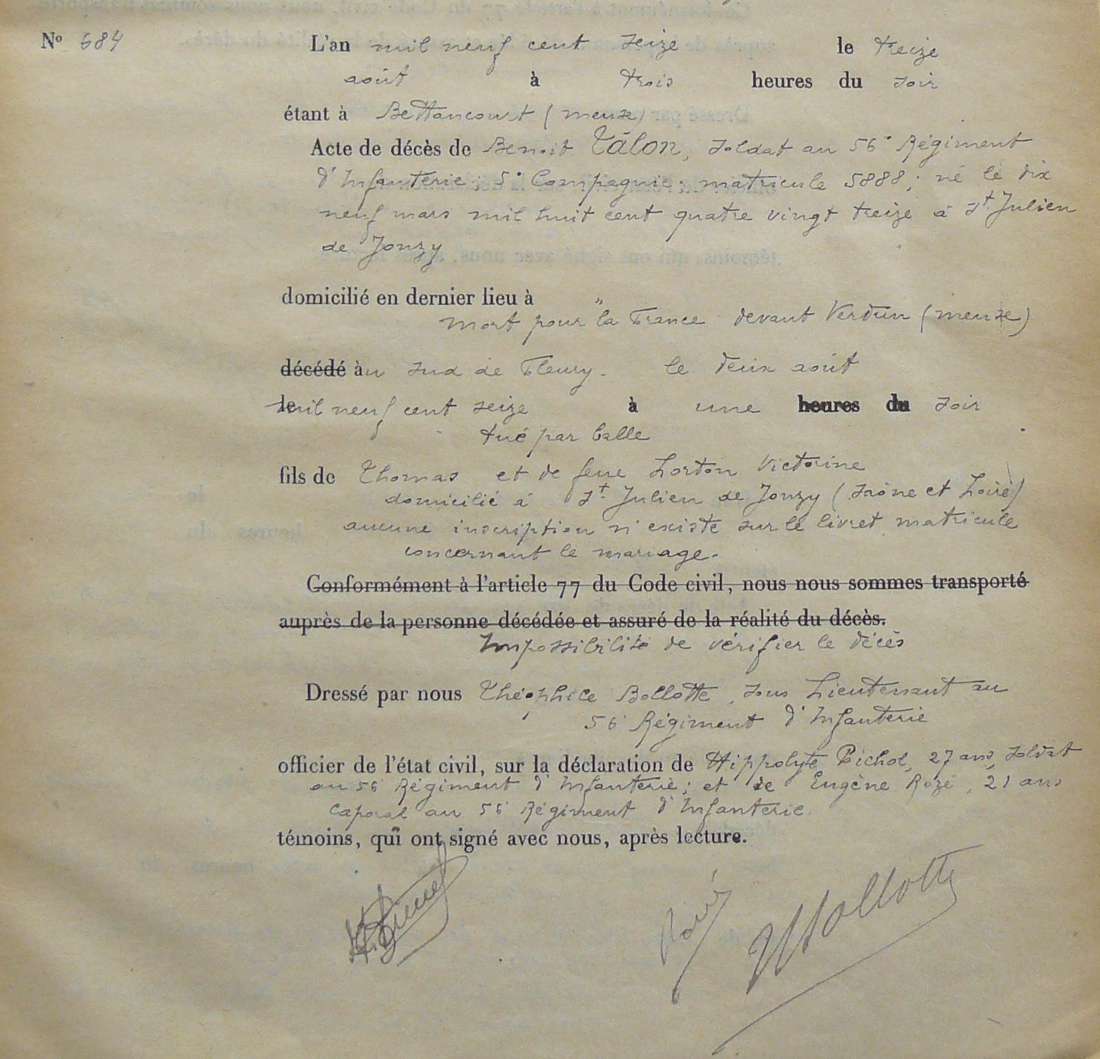 No 684
L'an mil neuf cent seize le treize
août à trois heures du soir
étant à Bettancourt (meuse)
Acte de décès de Benoit Tâlon, soldat au 56e Régiment
d'Infanterie 5e Compagnie; matricule 5888; né le dix
neuf mars mil huit cent quatre vingt treize à St Julien
de Jonzy
domicilié en dernier lieu à "
mort pour la France devant Verdun (meuse)
décédé au sud de Fleury. le deux août
le mil neuf cent seize à une heures du soir
tué par balle
fils de Thomas et de feue Lorton Victorine
domicilié à St Julien de Jonzy (Saône et Loire)
aucune inscription n'existe sur le livret matricule
concernant le mariage.
Conformément à l'article 77 du Code civil, nous nous sommes transporté
auprès de la personne décédée et assuré de la réalité du décès.
Impossibilité de vérifier le décès
Dressé par nous Théophile Bollotte, sous Lieutenant au
56e Régiment d'Infanterie
officier de l'état civil, sur la déclaration de Hippolyte 27 ans, soldat
au 56e Régiment d'Infanterie; et de Eugène Rozé, 21 ans
caporal au 56e Régiment d'Infanterie
témoins, qui ont signé avec nous, après lecture.
Rozé
Bollotte